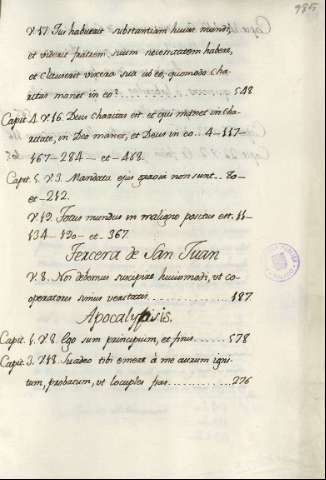 985
V. 17. Qui habuerit substantiam huius mundi,
et viderit fratrem suum necessitatem habere,
et clauserit viscera sua ab eo, quomodo cha-
ritas manet in eo 548
Capit. 4. V. 16. Deus charitas est et qui manet in cha-
ritate, in Deo manet, et Deus in eo. 4-117-
167-284- et - 468.
Capit. 5. V. 3. Mandata ejus gravia non sunt. 80-
et - 212.
V. 19. Totus mundus in maligno positus est. 11-
134-190- et - 367
Tercera de San Juan
V. 8. Nos debemus suscipere huiusmodi, ut co-
operatores simus veritatis 187
Apocalypsis.
Capit. 1. V. 8. Ego sum principium, et finis 578
Capit. 3. V. 18. Suadeo tibi emere à me aurum igni-
tum, probatum, ut locuples fias 276